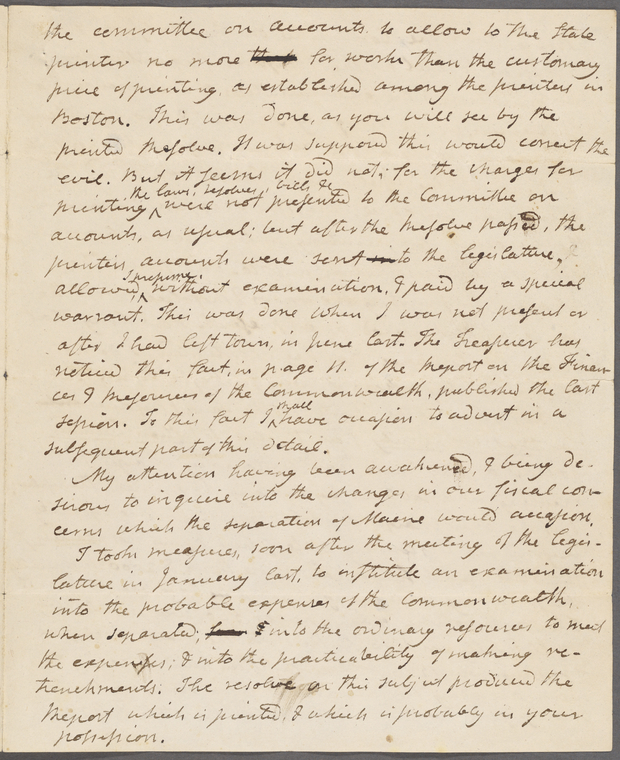 the committee on accounts to allow to the State
printer no more that for work than the customary
price of printing, as established among the printers in
Boston. This was done, as you will see by the
printed Resolve. It was supposed this would correct the
evil. But it seems it did not; for the charges for
the laws, resolves, bills &c
printing were not presented to the Committee on
accounts, as usual; but after the Resolve passed, the
printers accounts were sent in to the legislature,
I presume,
allowed, without examination, & paid by a special
warrant. This was done when I was not present or
after I had left town, in June last. The Treasurer has
noticed this fact, in page 11. of the Report on the Finan-
ces & Resources of the Commonwealth, published the last
session. To this fact I shall have occasion to advert in a
subsequent part of this detail.
My attention having been awakened, & being de-
sirous to inquire into the changes in our fiscal con-
cerns which the separation of Maine would occasion,
I took measures, soon after the meeting of the legis-
lature in January last, to institute an examination
into the probable expenses of the Commonwealth,
when separated; & into the ordinary resources to meet
the expenses; & into the practicability of making re-
trenchments. The resolve on this subject produced the
Report which is printed, & which is probably in your
possession.